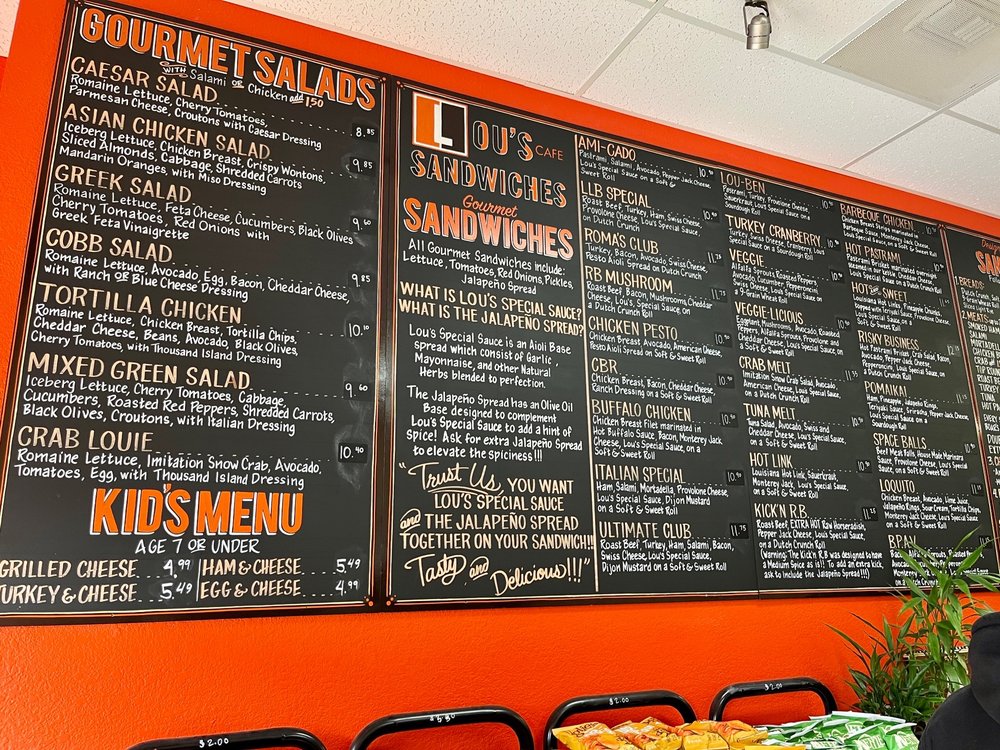 GOURMET SALADS
WITH Salami OR Chicken add 1.50
CAESAR SALAD
Romaine Lettuce, Cherry Tomatoes,
Parmesan Cheese, Croutons with Caesar Dressing 8.85
ASIAN CHICKEN SALAD
Iceberg Lettuce, Chicken Breast, Crispy Wontons,
Sliced Almonds, Cabbage, Shredded Carrots
Mandarin Oranges, with Miso Dressing
9.85
GREEK SALAD
Romaine Lettuce, Feta Cheese, Cucumbers, Black Olives
Cherry Tomatoes, Red Onions with
Greek Feta Vinaigrette
9.60
COBB SALAD
Romaine Lettuce, Avocado, Egg, Bacon, Cheddar Cheese,
with Ranch OR Blue Cheese Dressing
9.85
TORTILLA CHICKEN
Romaine Lettuce, Chicken Breast, Tortilla Chips,
Cheddar Cheese, Beans, Avocado, Black Olives,
Cherry Tomatoes, with Thousand Island Dressing
10.10
MIXED GREEN SALAD
Iceberg Lettuce, Cherry Tomatoes, Cabbage,
Cucumbers, Roasted Red Peppers, Shredded Carrots,
Black Olives, Croutons, with Italian Dressing
9.60
CRAB LOUIE
Romaine Lettuce, Imitation Snow Crab, Avocado,
Tomatoes, Egg, with Thousand Island Dressing
10.90
KID'S MENU
AGE 7 OR UNDER
GRILLED CHEESE 4.99
TURKEY & CHEESE 5.49
HAM & CHEESE 5.49
EGG & CHEESE 4.99
LOU'S CAFE
SANDWICHES
Gourmet
SANDWICHES
All Gourmet Sandwiches include:
Lettuce, Tomatoes, Red Onions, Pickles,
Jalapeño Spread
WHAT IS LOU'S SPECIAL SAUCE?
WHAT IS THE JALAPEÑO SPREAD?
Lou's Special Sauce is an Aioli Base
spread which consist of Garlic,
Mayonnaise, and other Natural
Herbs blended to perfection.
The Jalapeño Spread has an Olive Oil
Base designed to complement
Lou's Special Sauce to add a hint of
Spice! Ask for extra Jalapeño Spread
to elevate the spiciness!!!
"Trust Us, YOU WANT
LOU'S SPECIAL SAUCE
and THE JALAPEÑO SPREAD
TOGETHER ON YOUR SANDWICH!!
Tasty and
Delicious!!!"
AMI-GADO
Pastrami, Salami, Avocado, Pepper Jack Cheese,
Lou's Special Sauce on a Soft &
Sweet Roll
LLB SPECIAL
Roast Beef, Turkey, Ham, Swiss Cheese
Provolone Cheese, Lou's Special Sauce,
on Dutch Crunch
ROMA'S CLUB
Turkey, Bacon, Avocado, Swiss Cheese,
Pesto Aioli Spread on Dutch Crunch
RB MUSHROOM
Roast Beef, Bacon, Mushrooms, Cheddar
Cheese, Lou's Special Sauce, on
a Dutch Crunch
CHICKEN PESTO
Chicken Breast Avocado, American Cheese,
Pesto Aioli Spread on Soft & Sweet Roll
CBR
Chicken Breast, Bacon, Cheddar Cheese
Ranch Dressing on a Soft & Sweet Roll
BUFFALO CHICKEN
Chicken Breast Filet marinated in
Hot Buffalo Sauce, Bacon, Monterey Jack
Cheese, Lou's Special Sauce, on a
Soft & Sweet Roll
ITALIAN SPECIAL
Ham, Salami, Mortadella, Provolone Cheese,
Lou's Special Sauce, Dijon Mustard
on a Soft & Sweet Roll
ULTIMATE CLUB 11.75
Roast Beef, Turkey, Ham, Salami, Bacon,
Swiss Cheese, Lou's Special Sauce,
Dijon Mustard on a Soft & Sweet Roll
LOU-BEN
Pastrami, Turkey, Provolone Cheese,
Sauerkraut, Lou's Special Sauce on a
Sourdough Roll
TURKEY CRANBERRY
Turkey, Swiss Cheese, Cranberry, Lou's
Special Sauce on a Dutch Crunch
VEGGIE
Alfalfa Sprouts, Roasted Peppers,
Avocado, Cucumber, Pepperoncini
Swiss Cheese, Lou's Special Sauce, on a
9-Grain Wheat Roll
VEGGIE-LICIOUS
Eggplant, Mushrooms, Avocado, Roasted
Peppers, Alfalfa Sprouts, Provolone and
Cheddar Cheese, Lou's Special Sauce, on
a Soft & Sweet Roll
CRAB MELT
Imitation Snow Crab, Avocado,
American Cheese, Lou's Special Sauce,
on a Dutch Crunch
TUNA MELT
Tuna Salad, Avocado, Swiss and
Cheddar Cheese, Lou's Special Sauce,
on a Soft & Sweet Roll
HOT LINK
Louisiana Hot Link, Sauerkraut,
Monterey Jack, Lou's Special
Sauce, on a Soft & Sweet Roll
KICK'N R.B.
Roast Beef, EXTRA HOT Raw Horseradish,
Pepper Jack Cheese, Lou's Special Sauce,
on a Dutch Crunch Roll
(Warning: The Kick'n R.B was designed to have
a Medium Spice as is!! To add an extra kick,
ask to include the Jalapeño Spread!!!)
BARBEQUE CHICKEN
Chicken Breast Strips marinated in
Barbeque Sauce, Monterey Jack Cheese,
Lou's Special Sauce, on a
Soft & Sweet Roll
HOT PASTRAMI
Pastrami Brisket marinated overnight
on a Dutch Crunch Roll
HOT and SWEET
Louisiana Hot Link, Pineapple Chunks,
on a Soft & Sweet Roll
RISKY BUSINESS
a Dutch Crunch Roll
POMAIKA'I
Ham, Pineapple, Jalapeño Rings,
Teriyaki Sauce, Sriracha, Pepper Jack Cheese,
Lou's Special Sauce, on a
Sourdough Roll
SPACE BALLS
Beef Meat Balls, House Made Marinara
Sauce, Provolone Cheese, Lou's Special
Sauce, on a Soft & Sweet Roll
LOQUITO
Chicken Breast, Avocado, Lime Juice,
Jalapeño Rings, Sour Cream, Tortilla Chips,
Monterey Jack Cheese, Lou's Special Sauce,
on a Soft & Sweet Roll
$2.00
$2.00
$2.00